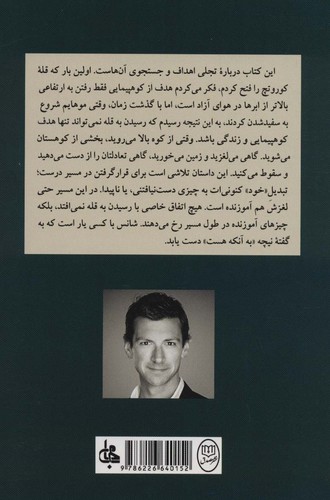 این کتاب دربارهٔ تجلی اهداف و جستجوی آن‌هاست. اولین بار که قلهٔ
کورواچ را فتح کردم، فکر می‌کردم هدف از کوهپیمایی فقط رفتن به ارتفاعی
بالاتر از ابرها در هوای آزاد است، اما با گذشت زمان، وقتی موهایم شروع
به سفیدشدن کردند، به این نتیجه رسیدم که رسیدن به قله نمی‌تواند تنها هدف
کوهپیمایی و زندگی باشد. وقتی از کوه بالا می‌روید، بخشی از کوهستان
می‌شوید. گاهی می‌لغزید و زمین می‌خورید، گاهی تعادلتان را از دست می‌دهید
و سقوط می‌کنید. این داستان تلاشی است برای قرارگرفتن در مسیر درست؛
تبدیل «خود» کنونی‌ات به چیزی دست‌نیافتنی، یا ناپیدا. در این مسیر حتی
لغزش هم آموزنده است. هیچ اتفاق خاصی با رسیدن به قله نمی‌افتد، بلکه
چیزهای آموزنده در طول مسیر رخ می‌دهند. شانس با کسی یار است که به
گفتهٔ نیچه «به آنکه هست» دست یابد.
9 786226 640152